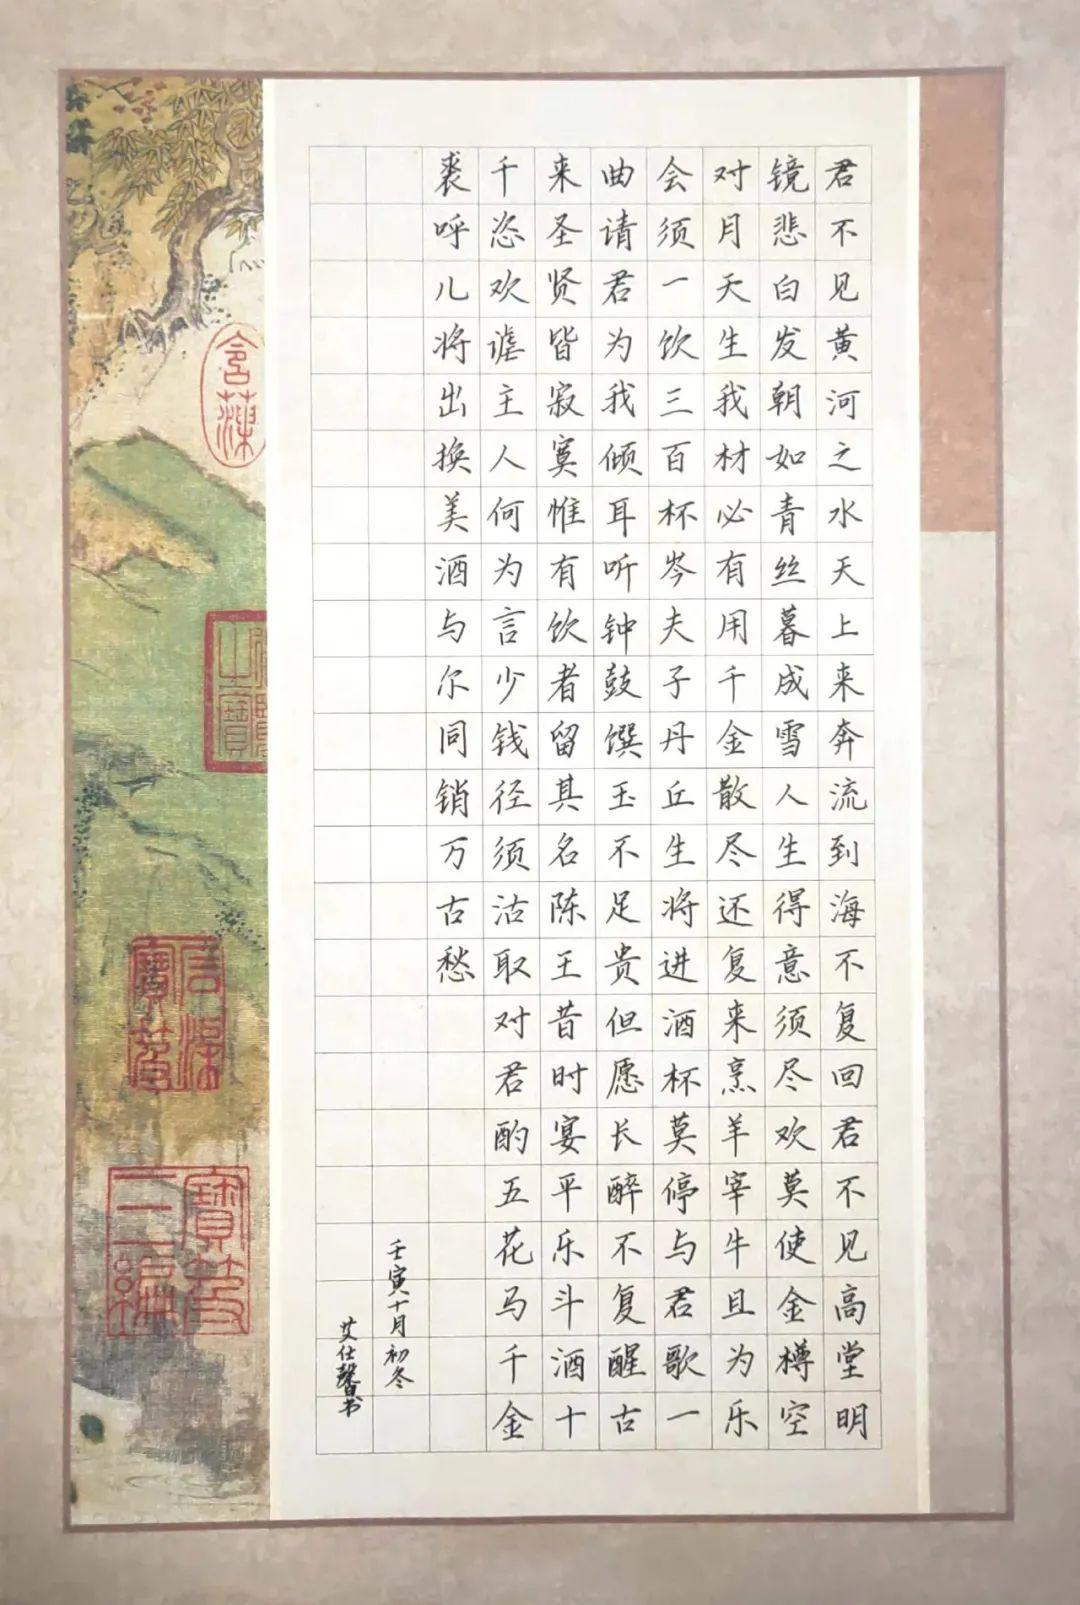 君不见黄河之水天上来奔流到海不复回君不见高堂明
镜悲白发朝如青丝暮成雪人生得意须尽欢莫使金樽空
对月天生我材必有用千金散尽还复来烹羊宰牛且为乐
会须一饮三百杯岑夫子丹丘生将进酒杯莫停与君歌一
曲请君为我倾耳听钟鼓馔玉不足贵但愿长醉不复醒古
来圣贤皆寂寞惟有饮者留其名陈王昔时宴平乐斗酒十
千恣欢谑主人何为言少钱径须沽取对君酌五花马千金
裘呼儿将出换美酒与尔同销万古愁
壬寅十月初冬
艾仕馨书